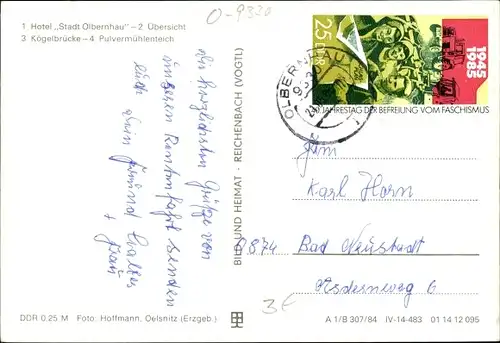 1 Hotel „Stadt Olbernhau" – 2 Übersicht
3 Kögelbrücke – 4 Pulvermühlenteich
0-9330
Die herzlichsten Grüße von
unseren Rentnerfahrt senden
Euch Dein Freund Walter
+ Frau
DDR 0,25 M Foto: Hoffmann, Oelsnitz (Erzgeb.)
BILD UND HEIMAT · REICHENBACH (VOGTL)
25
DDR
1945
1985
40. JAHRESTAG DER BEFREIUNG VOM FASCHISMUS
OLBERNHAU
Karl Horn
8874 Bad Neustadt
6
3€
A 1/B 307/84 IV-14-483 01 14 12 095